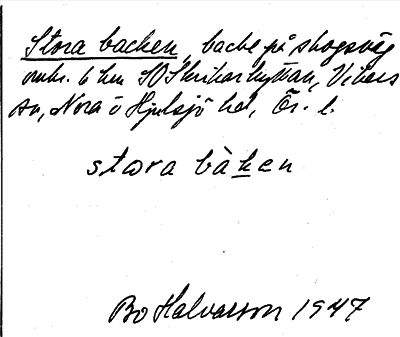 Stora backen, backe på skogsväg
omkr. 6 km SO Skrikarhyttan, Vikers
sn, Nora o Hjulsjö hd, Ör. l.
stora bàken
Bo Halvarson 1947